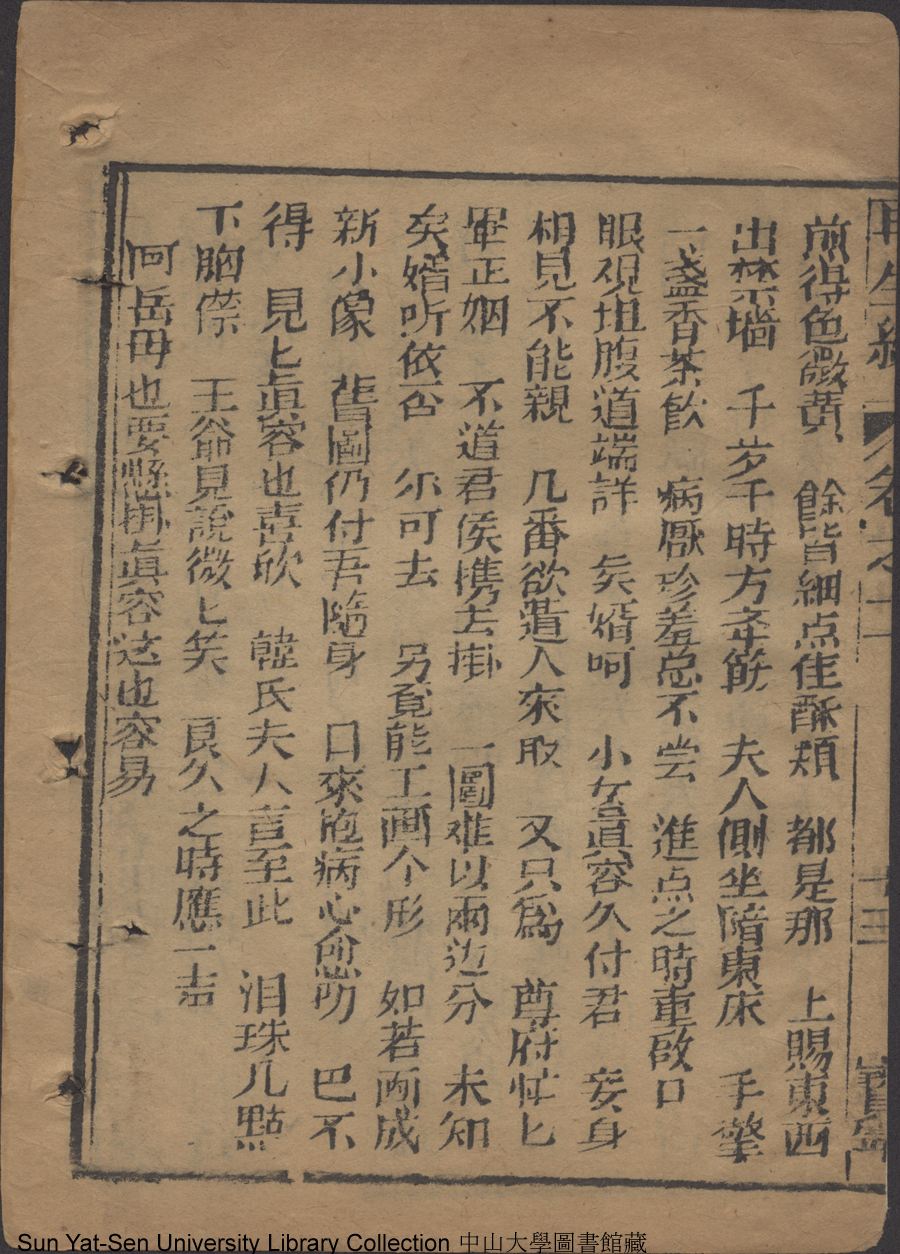 再生緣 卷之二 十三 寳寧
煎得色微黃 餘皆細点佳酥類 都是那 上賜東西
出禁墻 千岁千時方㪯筯 夫人側坐陪東床 手擎
一盞香茶飲 病厭珍羞总不尝 進点之時重啟口
眼覌坦腹道端詳 矣婿呵 小女眞容久付君 妾身
相見不能親 几番欲遣人來取 又只爲 尊府忙匕
畢正姻 不道君侯携去掛 一圖难以兩边分 未知
矣婿听依否 尔可去 另覔能工画个形 如若画成
新小像 舊圖仍付吾隨身 日來抱病心愈切 巴不
得 見匕眞容也喜欣 韓氏夫人言至此 泪珠几點
下胸襟 王爺見說微匕笑 良久之時應一声
呵岳毋也要懸掛眞容这也容易
Sun Yat-Sen University Library Collection 中山大學圖書館藏